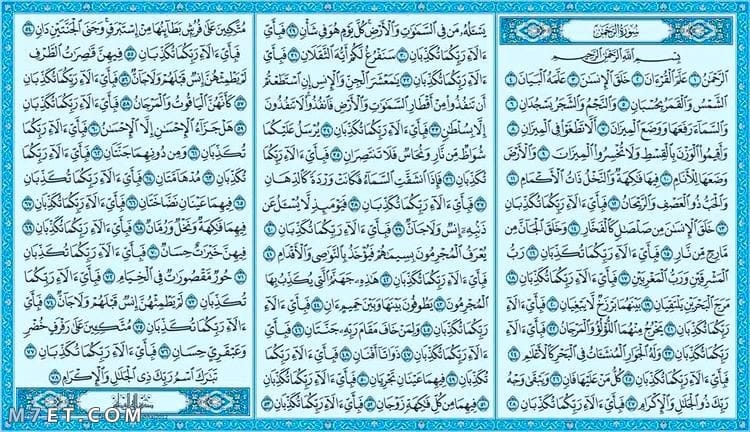 سُورَةُ الرَّحۡمَٰن
بِسۡمِ اللَّهِ الرَّحۡمَٰنِ الرَّحِيمِ
الرَّحۡمَٰنُ ١ عَلَّمَ الۡقُرۡءَانَ ٢ خَلَقَ الۡإِنسَٰنَ ٣ عَلَّمَهُ الۡبَيَانَ ٤
الشَّمۡسُ وَالۡقَمَرُ بِحُسۡبَانٖ ٥ وَالنَّجۡمُ وَالشَّجَرُ يَسۡجُدَانِ ٦
وَالسَّمَآءَ رَفَعَهَا وَوَضَعَ الۡمِيزَانَ ٧ أَلَّا تَطۡغَوۡاْ فِي الۡمِيزَانِ ٨
وَأَقِيمُواْ الۡوَزۡنَ بِالۡقِسۡطِ وَلَا تُخۡسِرُواْ الۡمِيزَانَ ٩ وَالۡأَرۡضَ
وَضَعَهَا لِلۡأَنَامِ ١٠ فِيهَا فَٰكِهَةٞ وَالنَّخۡلُ ذَاتُ الۡأَكۡمَامِ ١١
وَالۡحَبُّ ذُو الۡعَصۡفِ وَالرَّيۡحَانُ ١٢ فَبِأَيِّ ءَالَآءِ رَبِّكُمَا تُكَذِّبَانِ
١٣ خَلَقَ الۡإِنسَٰنَ مِن صَلۡصَٰلٖ كَالۡفَخَّارِ ١٤ وَخَلَقَ الۡجَآنَّ مِن
مَّارِجٖ مِّن نَّارٖ ١٥ فَبِأَيِّ ءَالَآءِ رَبِّكُمَا تُكَذِّبَانِ ١٦ رَبُّ
الۡمَشۡرِقَيۡنِ وَرَبُّ الۡمَغۡرِبَيۡنِ ١٧ فَبِأَيِّ ءَالَآءِ رَبِّكُمَا تُكَذِّبَانِ ١٨
مَرَجَ الۡبَحۡرَيۡنِ يَلۡتَقِيَانِ ١٩ بَيۡنَهُمَا بَرۡزَخٞ لَّا يَبۡغِيَانِ ٢٠ فَبِأَيِّ
ءَالَآءِ رَبِّكُمَا تُكَذِّبَانِ ٢١ يَخۡرُجُ مِنۡهُمَا اللُّؤۡلُؤُ وَالۡمَرۡجَانُ ٢٢ فَبِأَيِّ
ءَالَآءِ رَبِّكُمَا تُكَذِّبَانِ ٢٣ وَلَهُ الۡجَوَارِ الۡمُنشَـَٔاتُ فِي الۡبَحۡرِ كَالۡأَعۡلَٰمِ ٢٤
فَبِأَيِّ ءَالَآءِ رَبِّكُمَا تُكَذِّبَانِ ٢٥ كُلُّ مَنۡ عَلَيۡهَا فَانٖ ٢٦ وَيَبۡقَىٰ وَجۡهُ
رَبِّكَ ذُو الۡجَلَٰلِ وَالۡإِكۡرَامِ ٢٧ فَبِأَيِّ ءَالَآءِ رَبِّكُمَا تُكَذِّبَانِ ٢٨
يَسۡـَٔلُهُۥ مَن فِي السَّمَٰوَٰتِ وَالۡأَرۡضِۚ كُلَّ يَوۡمٍ هُوَ فِي شَأۡنٖ ٢٩ فَبِأَيِّ
ءَالَآءِ رَبِّكُمَا تُكَذِّبَانِ ٣٠ سَنَفۡرُغُ لَكُمۡ أَيُّهَ الثَّقَلَانِ ٣١ فَبِأَيِّ
ءَالَآءِ رَبِّكُمَا تُكَذِّبَانِ ٣٢ يَٰمَعۡشَرَ الۡجِنِّ وَالۡإِنسِ إِنِ اسۡتَطَعۡتُمۡ
أَن تَنفُذُواْ مِنۡ أَقۡطَارِ السَّمَٰوَٰتِ وَالۡأَرۡضِ فَانفُذُواْۚ لَا تَنفُذُونَ
إِلَّا بِسُلۡطَٰنٖ ٣٣ فَبِأَيِّ ءَالَآءِ رَبِّكُمَا تُكَذِّبَانِ ٣٤ يُرۡسَلُ عَلَيۡكُمَا
شُوَاظٞ مِّن نَّارٖ وَنُحَاسٞ فَلَا تَنتَصِرَانِ ٣٥ فَبِأَيِّ ءَالَآءِ رَبِّكُمَا
تُكَذِّبَانِ ٣٦ فَإِذَا انشَقَّتِ السَّمَآءُ فَكَانَتۡ وَرۡدَةٗ كَالدِّهَانِ
٣٧ فَبِأَيِّ ءَالَآءِ رَبِّكُمَا تُكَذِّبَانِ ٣٨ فَيَوۡمَئِذٖ لَّا يُسۡـَٔلُ عَن
ذَنۢبِهِۦٓ إِنسٞ وَلَا جَآنّٞ ٣٩ فَبِأَيِّ ءَالَآءِ رَبِّكُمَا تُكَذِّبَانِ ٤٠
يُعۡرَفُ الۡمُجۡرِمُونَ بِسِيمَٰهُمۡ فَيُؤۡخَذُ بِالنَّوَٰصِي وَالۡأَقۡدَامِ ٤١
فَبِأَيِّ ءَالَآءِ رَبِّكُمَا تُكَذِّبَانِ ٤٢ هَٰذِهِۦ جَهَنَّمُ الَّتِي يُكَذِّبُ بِهَا
الۡمُجۡرِمُونَ ٤٣ يَطُوفُونَ بَيۡنَهَا وَبَيۡنَ حَمِيمٍ ءَانٖ ٤٤ فَبِأَيِّ ءَالَآءِ
رَبِّكُمَا تُكَذِّبَانِ ٤٥ وَلِمَنۡ خَافَ مَقَامَ رَبِّهِۦ جَنَّتَانِ ٤٦ فَبِأَيِّ
ءَالَآءِ رَبِّكُمَا تُكَذِّبَانِ ٤٧ ذَوَاتَآ أَفۡنَانٖ ٤٨ فَبِأَيِّ ءَالَآءِ رَبِّكُمَا
تُكَذِّبَانِ ٤٩ فِيهِمَا عَيۡنَانِ تَجۡرِيَانِ ٥٠ فَبِأَيِّ ءَالَآءِ رَبِّكُمَا تُكَذِّبَانِ
٥١ فِيهِمَا مِن كُلِّ فَٰكِهَةٖ زَوۡجَانِ ٥٢ فَبِأَيِّ ءَالَآءِ رَبِّكُمَا تُكَذِّبَانِ ٥٣
مُتَّكِـِٔينَ عَلَىٰ فُرُشِۭ بَطَآئِنُهَا مِنۡ إِسۡتَبۡرَقٖۚ وَجَنَى الۡجَنَّتَيۡنِ دَانٖ ٥٤
فَبِأَيِّ ءَالَآءِ رَبِّكُمَا تُكَذِّبَانِ ٥٥ فِيهِنَّ قَٰصِرَٰتُ الطَّرۡفِ
لَمۡ يَطۡمِثۡهُنَّ إِنسٞ قَبۡلَهُمۡ وَلَا جَآنّٞ ٥٦ فَبِأَيِّ ءَالَآءِ رَبِّكُمَا تُكَذِّبَانِ
٥٧ كَأَنَّهُنَّ الۡيَاقُوتُ وَالۡمَرۡجَانُ ٥٨ فَبِأَيِّ ءَالَآءِ رَبِّكُمَا تُكَذِّبَانِ
٥٩ هَلۡ جَزَآءُ الۡإِحۡسَٰنِ إِلَّا الۡإِحۡسَٰنُ ٦٠ فَبِأَيِّ ءَالَآءِ رَبِّكُمَا
تُكَذِّبَانِ ٦١ وَمِن دُونِهِمَا جَنَّتَانِ ٦٢ فَبِأَيِّ ءَالَآءِ رَبِّكُمَا
تُكَذِّبَانِ ٦٣ مُدۡهَآمَّتَانِ ٦٤ فَبِأَيِّ ءَالَآءِ رَبِّكُمَا تُكَذِّبَانِ
٦٥ فِيهِمَا عَيۡنَانِ نَضَّاخَتَانِ ٦٦ فَبِأَيِّ ءَالَآءِ رَبِّكُمَا تُكَذِّبَانِ ٦٧
فِيهِمَا فَٰكِهَةٞ وَنَخۡلٞ وَرُمَّانٞ ٦٨ فَبِأَيِّ ءَالَآءِ رَبِّكُمَا تُكَذِّبَانِ ٦٩
فِيهِنَّ خَيۡرَٰتٌ حِسَانٞ ٧٠ فَبِأَيِّ ءَالَآءِ رَبِّكُمَا تُكَذِّبَانِ
٧١ حُورٞ مَّقۡصُورَٰتٞ فِي الۡخِيَامِ ٧٢ فَبِأَيِّ ءَالَآءِ رَبِّكُمَا
تُكَذِّبَانِ ٧٣ لَمۡ يَطۡمِثۡهُنَّ إِنسٞ قَبۡلَهُمۡ وَلَا جَآنّٞ ٧٤ فَبِأَيِّ
ءَالَآءِ رَبِّكُمَا تُكَذِّبَانِ ٧٥ مُتَّكِـِٔينَ عَلَىٰ رَفۡرَفٍ خُضۡرٖ
وَعَبۡقَرِيٍّ حِسَانٖ ٧٦ فَبِأَيِّ ءَالَآءِ رَبِّكُمَا تُكَذِّبَانِ ٧٧
تَبَٰرَكَ اسۡمُ رَبِّكَ ذِي الۡجَلَٰلِ وَالۡإِكۡرَامِ ٧٨
M7ET.COM